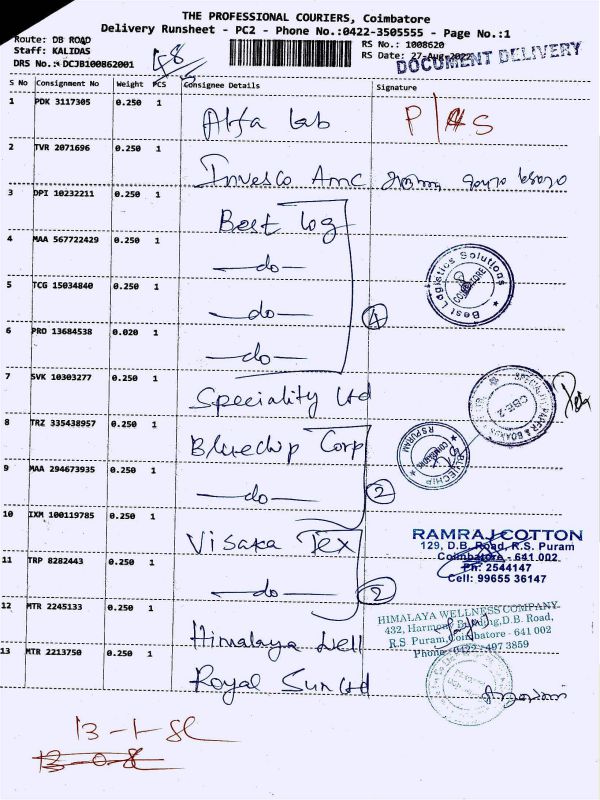 THE PROFESSIONAL COURIERS, Coimbatore
Delivery Runsheet - PC2 - Phone No.:0422-3505555 - Page No.:1
Route: DB ROAD
Staff: KALIDAS
DRS No.: DCJB100862001
RS No.: 1008620
RS Date: 27-Aug-2022
DOCUMENT DELIVERY
S No Consignment No Weight PCS Consignee Details Signature
1 PDK 3117305 0.250 1 Alfa Lab
2 TVR 2071696 0.250 1 Invesco Amc
3 DPI 10232211 0.250 1 Best Log
4 MAA 567722429 0.250 1 —do—
5 TCG 15034840 0.250 1 —do—
6 PRO 13684538 0.020 1 —do—
4
Best Logistics Solutions
COIMBATORE
7 SVK 10303277 0.250 1 Speciality Ltd
CBE-2
8 TRZ 335438957 0.250 1 Bluechip Corp
9 MAA 294673935 0.250 1 —do—
2
10 IXM 100119785 0.250 1 Visaka Tex
11 TRP 8282443 0.250 1 —do—
2
RAMRAJ COTTON
129, D.B. Road, R.S. Puram
Coimbatore - 641 002
Ph: 2544147
Cell: 99655 36147
12 MTR 2245133 0.250 1 Himalaya Well
HIMALAYA WELLNESS COMPANY
432, Harmony Building, D.B. Road,
R.S. Puram, Coimbatore - 641 002
Phone: 0422 - 497 3859
13 MTR 2213750 0.250 1 Royal Sun Ltd